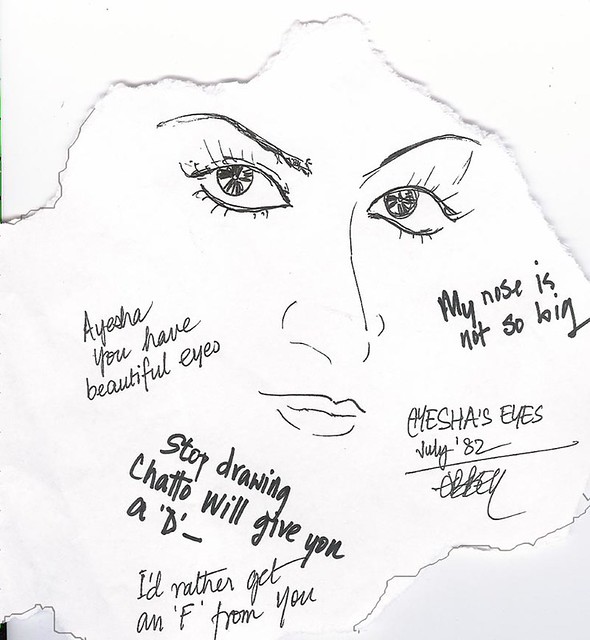 Ayesha
you have
beautiful eyes
My nose is
not so big
AYESHA'S EYES
July '82
Stop drawing
Chatto Will give you
a 'D'_
I'd rather get
an 'F' from you